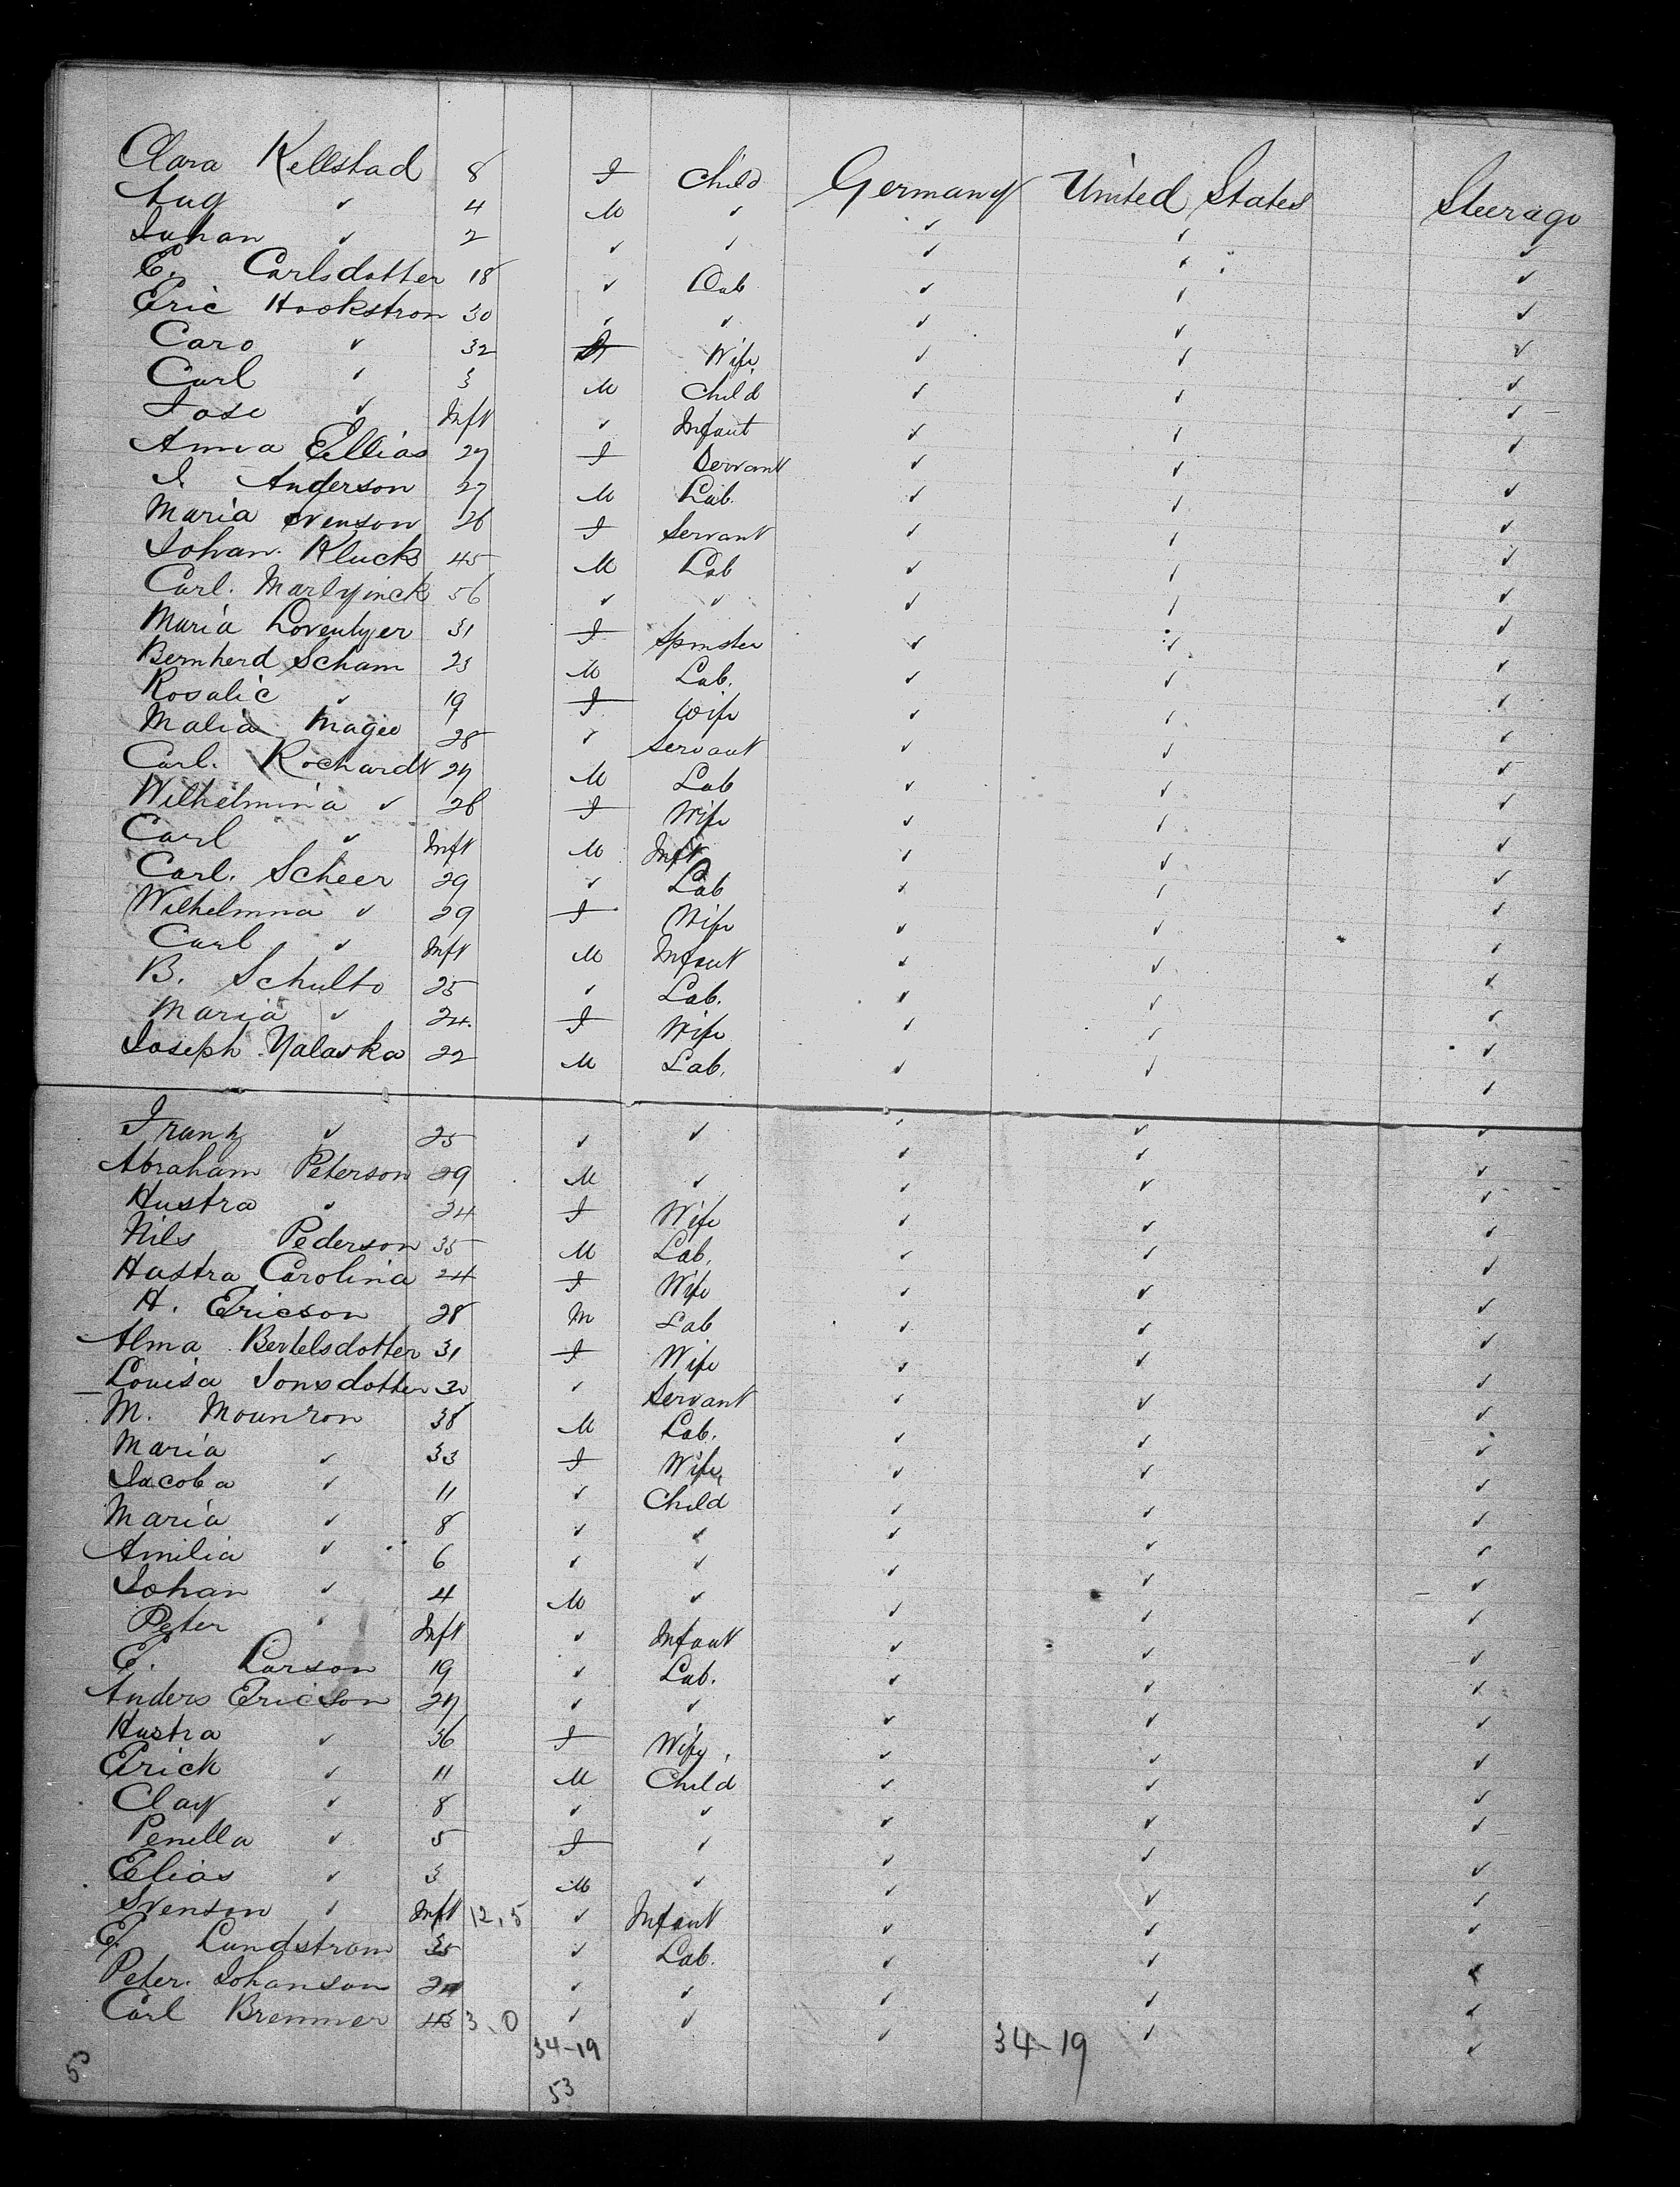 Clara Kellstad 8 F Child Germany United States Steerage
Aug ✓ 4 M ✓ ✓ ✓ ✓
Johan ✓ 2 ✓ ✓ ✓ ✓ ✓
C. Carlsdotter 18 ✓ Lab ✓ ✓ ✓
Eric Hookstrom 30 ✓ ✓ ✓ ✓ ✓
Caro ✓ 32 F Wife ✓ ✓ ✓
Carl ✓ 3 M Child ✓ ✓ ✓
Jose ✓ Inft ✓ Infant ✓ ✓ ✓
Anna Ellias 27 F Servant ✓ ✓ ✓
J. Anderson 27 M Lab. ✓ ✓ ✓
Maria Svenson 26 F Servant ✓ ✓ ✓
Johan Kluck 45 M Lab ✓ ✓ ✓
Carl. 56 ✓ ✓ ✓ ✓ ✓
Maria 31 F Spinster ✓ ✓ ✓
Bernherd Scham 23 M Lab. ✓ ✓ ✓
Rosalie ✓ 19 F Wife ✓ ✓ ✓
Malia Mageo 28 ✓ Servant ✓ ✓ ✓
Carl. Rochardt 27 M Lab ✓ ✓ ✓
Wilhelmina ✓ 26 F Wife ✓ ✓ ✓
Carl ✓ Inft M Inft ✓ ✓ ✓
Carl. Scheer 29 ✓ Lab ✓ ✓ ✓
Wilhelmina ✓ 29 F Wife ✓ ✓ ✓
Carl ✓ Inft M Infant ✓ ✓ ✓
B. Schulto 25 ✓ Lab. ✓ ✓ ✓
Maria ✓ 24 F Wife ✓ ✓ ✓
Joseph Yalaska 22 M Lab. ✓ ✓ ✓
Franz ✓ 25 ✓ ✓ ✓ ✓ ✓
Abraham Peterson 29 M ✓ ✓ ✓ ✓
Hustra ✓ 24 F Wife ✓ ✓ ✓
Nils Pederson 35 M Lab. ✓ ✓ ✓
Hustra Carolina 24 F Wife ✓ ✓ ✓
H. Ericson 28 M Lab ✓ ✓ ✓
Alma Bertelsdotter 31 F Wife ✓ ✓ ✓
Louisa Jonsdotter 30 ✓ Servant ✓ ✓ ✓
M. Mounron 38 M Lab. ✓ ✓ ✓
Maria ✓ 33 F Wife ✓ ✓ ✓
Jacoba ✓ 11 ✓ Child ✓ ✓ ✓
Maria ✓ 8 ✓ ✓ ✓ ✓ ✓
Amilia ✓ 6 ✓ ✓ ✓ ✓ ✓
Johan ✓ 4 M ✓ ✓ ✓ ✓
Peter ✓ Inft ✓ Infant ✓ ✓ ✓
E. Larson 19 ✓ Lab. ✓ ✓ ✓
Anders Ericson 27 ✓ ✓ ✓ ✓ ✓
Hustra ✓ 36 F Wife ✓ ✓ ✓
Erick ✓ 11 M Child ✓ ✓ ✓
Clay ✓ 8 ✓ ✓ ✓ ✓ ✓
Penella ✓ 5 F ✓ ✓ ✓ ✓
Elias ✓ 3 M ✓ ✓ ✓ ✓
Svenson ✓ Inft 12,5 ✓ Infant ✓ ✓ ✓
E. Lundstrom 35 ✓ Lab. ✓ ✓ ✓
Peter. Johanson ✓ ✓ ✓ ✓ ✓
Carl Bremmer 3,0 ✓ ✓ ✓ ✓ ✓
34-19 34-19
53 53